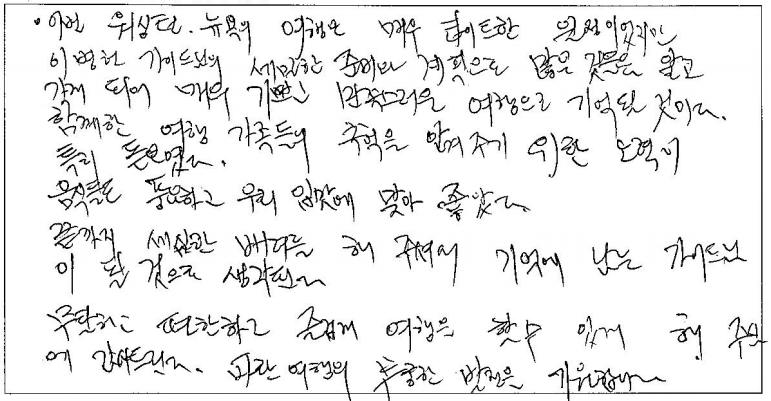 • 이번 워싱턴. 뉴욕의 여행은 매우 타이트한 일정이었지만
이병헌 가이드님의 세밀한 준비와 계획으로 많은 것들을 알고
가게 되어 매우 기쁘고 만족스러운 여행으로 기억될 것이다.
함께한 여행 가족들의 추억을 남겨주기 위한 노력이
특히 돋보였다.
음식들도 풍요하고 우리 입맛에 맞아 좋았다.
끝까지 세심한 배려를 해 주셔서 기억에 남는 가이드님
이 될 것으로 생각된다
무탈하고 편안하고 즐겁게 여행을 할 수 있게 해 주심
에 감사드린다. 파란여행의 무궁한 발전을 기원합니다